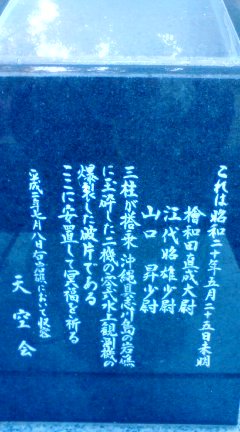 これは昭和二十年五月二十五日未明
檜和田直成大尉
江代昭雄少尉
山口 昇少尉
三柱が搭乗 沖縄県慶川島の岩礁
に玉砕した二機の零式水上観測機の
爆製した破片である
ここに安置して冥福を祈る
平成二年七月八日
天空会